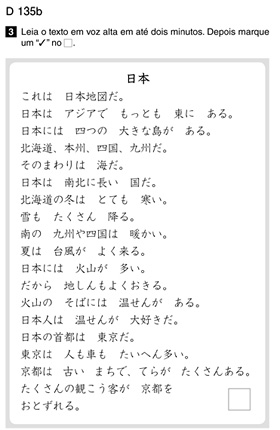 D 135b
3 Leia o texto em voz alta em até dois minutos. Depois marque
um “✓” no □.
日本
これは　日本地図だ。
日本は　アジアで　もっとも　東に　ある。
日本には　四つの　大きな島が　ある。
北海道、本州、四国、九州だ。
そのまわりは　海だ。
日本は　南北に長い　国だ。
北海道の冬は　とても　寒い。
雪も　たくさん　降る。
南の　九州や四国は　暖かい。
夏は　台風が　よく来る。
日本には　火山が　多い。
だから　地しんもよくおきる。
火山の　そばには　温せんが　ある。
日本人は　温せんが　大好きだ。
日本の首都は　東京だ。
東京は　人も車も　たいへん多い。
京都は　古い　まちで、てらが　たくさんある。
たくさんの観こう客が　京都を
おとずれる。